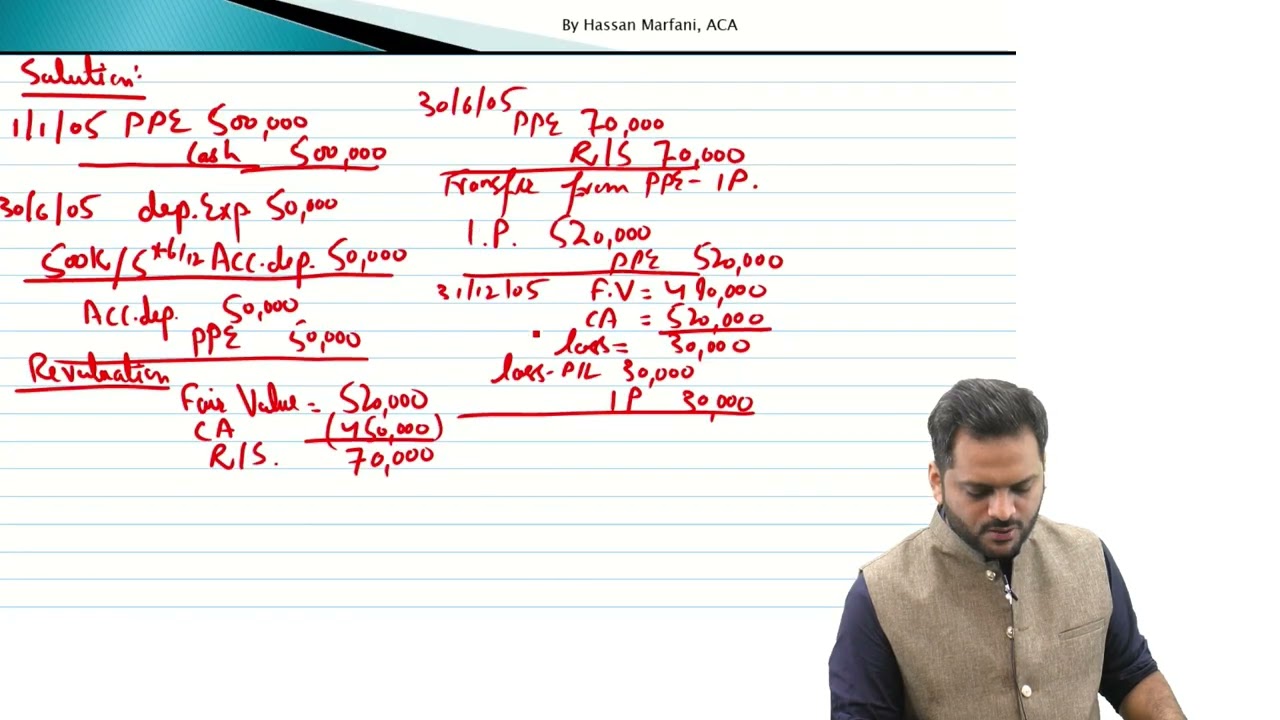 By Hassan Marfani, ACA
Solution:
1/1/05 PPE 500,000
Cash 500,000
30/6/05 dep. Exp. 50,000
500K/5*6/12 Acc. dep. 50,000
Acc. dep. 50,000
PPE 50,000
Revaluation
Fair Value = 520,000
CA (450,000)
R/S. 70,000
30/6/05
PPE 70,000
R/S 70,000
Transfer from PPE - IP.
I.P. 520,000
PPE 520,000
31/12/05 F.V = 490,000
CA = 520,000
loss = 30,000
loss - P/L 30,000
IP 30,000